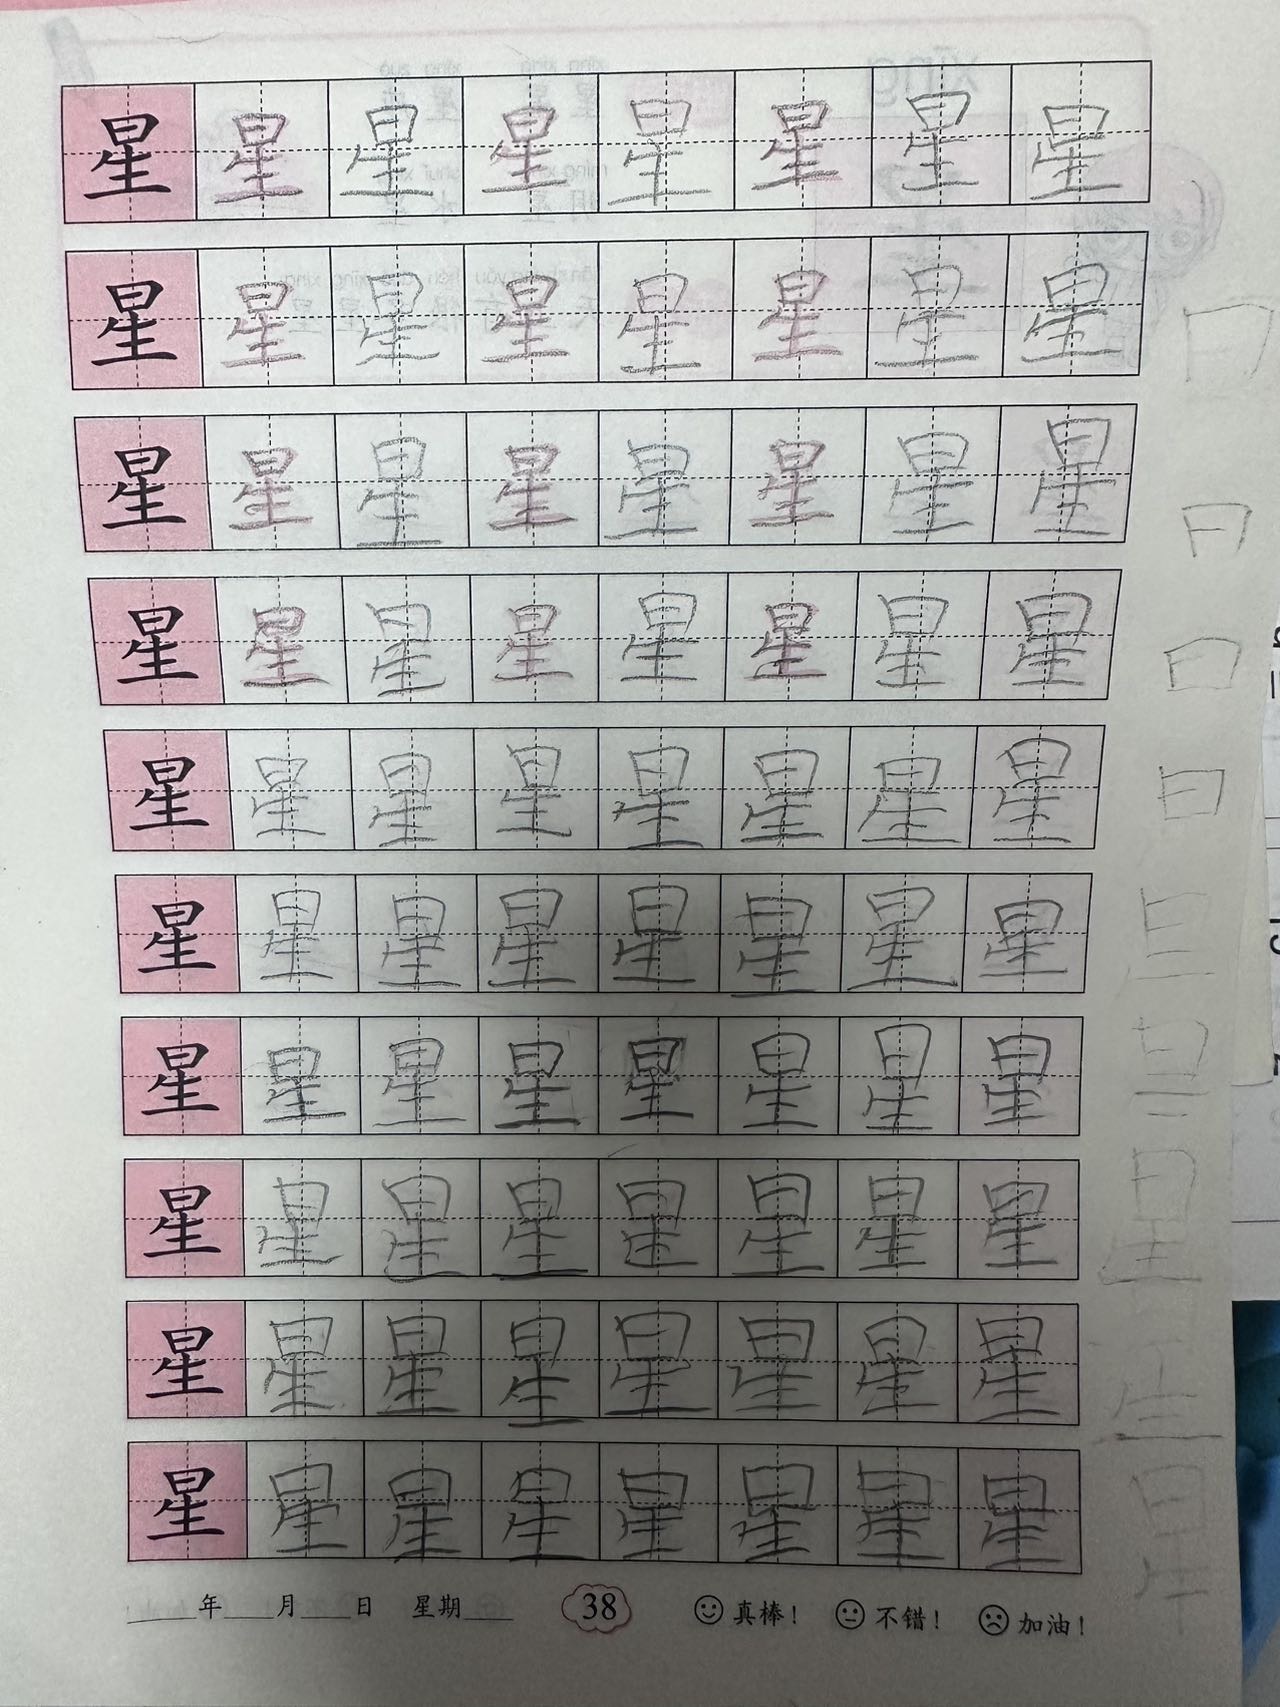 星 星 星 星 星 星 星 星
星 星 星 星 星 星 星 星
星 星 星 星 星 星 星 星
星 星 星 星 星 星 星 星
星 星 星 星 星 星 星 星
星 星 星 星 星 星 星 星
星 星 星 星 星 星 星 星
星 星 星 星 星 星 星 星
星 星 星 星 星 星 星 星
星 星 星 星 星 星 星 星
____年___月___日 星期____ 38 真棒！ 不错！ 加油！